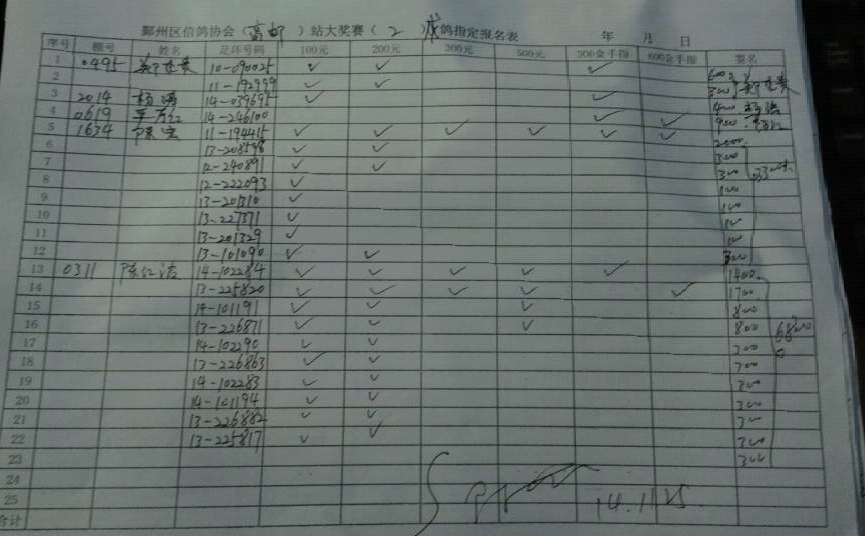 鄞州区信鸽协会（高邮）站大奖赛（2）成鸽指定报名表 年 月 日
序号 棚号 姓名 足环号码 100元 200元 300元 500元 300金手指 金手指 签名
1 0495 10-090025 ✓ ✓ ✓ 600
2 11-192999 ✓ ✓ 300
3 2014 杨涛 14-039695 ✓ ✓ 400
4 0619 14-246100 ✓ ✓ 900
5 1634 陈宏 11-194415 ✓ ✓ ✓ ✓ ✓ ✓ 2000
6 13-208598 ✓ ✓ 300
7 12-24089 ✓ ✓ 300
8 12-222093 ✓ 100
9 13-201310 ✓ 100
10 13-227371 ✓ 100
11 13-201329 ✓ 100
12 13-101090 ✓ ✓ 300
13 0311 陈红洁 14-102284 ✓ ✓ ✓ ✓ ✓ 1400
14 13-225820 ✓ ✓ ✓ ✓ ✓ 1700
15 14-101191 ✓ ✓ ✓ 800
16 13-226871 ✓ ✓ ✓ 800 6800
17 14-102290 ✓ ✓ 300
18 13-226863 ✓ ✓ 300
19 14-102283 ✓ ✓ 300
20 14-101194 ✓ ✓ 300
21 13-226882 ✓ ✓ 300
22 13-225817 ✓ ✓ 300
23 300
24
25 14.11.25
合计